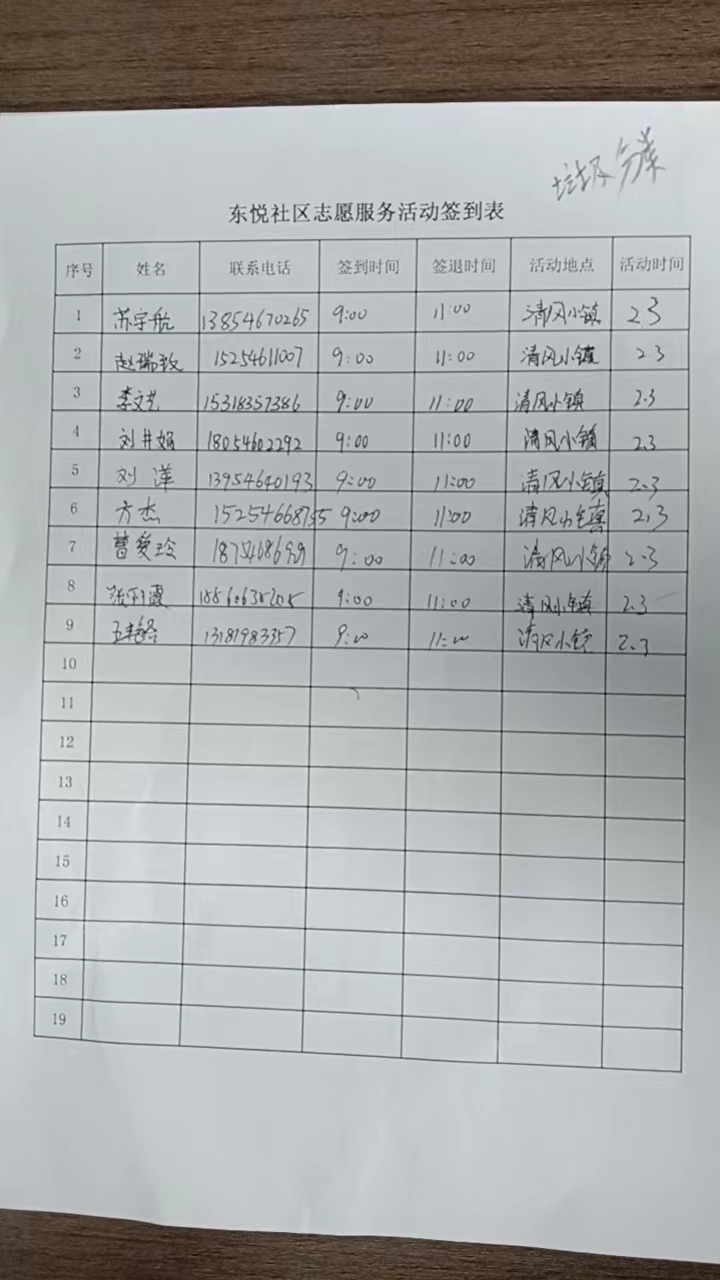 垃圾分类
东悦社区志愿服务活动签到表
序号 姓名 联系电话 签到时间 签退时间 活动地点 活动时间
1 苏宇航 13854670265 9:00 11:00 清风小镇 2.3
2 赵瑞玫 15254611007 9:00 11:00 清风小镇 2.3
3 李文艺 15318357386 9:00 11:00 清风小镇 2.3
4 刘井娟 18054602292 9:00 11:00 清风小镇 2.3
5 刘萍 13954640193 9:00 11:00 清风小镇 2.3
6 方杰 9:00 11:00 清风小镇 2.3
7 9:00 11:00 清风小镇 2.3
8 9:00 11:00 清风小镇 2.3
9 13181983357 9:00 11:00 清风小镇 2.3
10
11
12
13
14
15
16
17
18
19